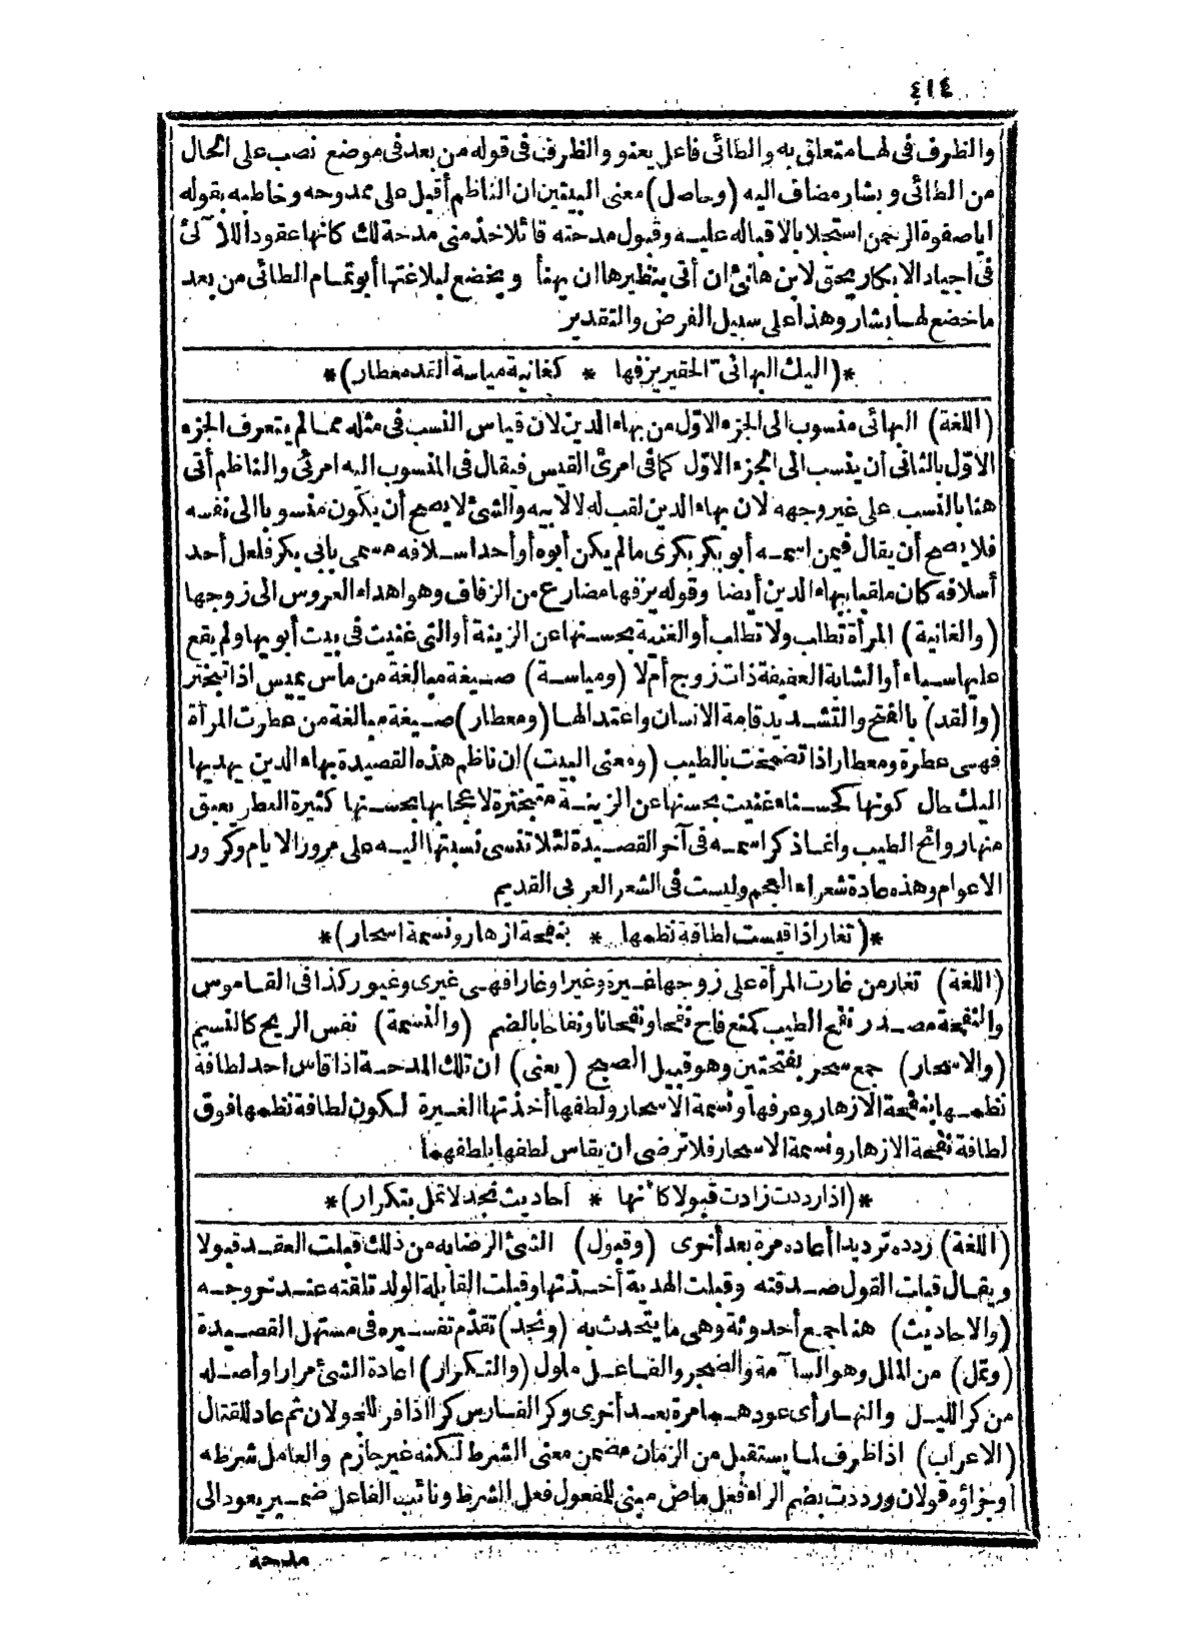 ٤١٤
والظرف فى لها متعلق به والطائى فاعل يعنو والظرف فى قوله من بعد فى موضع نصب على الحال
من الطائى وبشار مضاف اليه (وحاصل) معنى البيتين ان الناظم أقبل على ممدوحه وخاطبه بقوله
اياصفوة الرحمن استجلابا لاقباله عليه وقبول مدحته قائلا خذ منى مدحة لك كانها عقود اللآلئ
فى اجياد الابكار يحق لابن هانئ ان أتى بنظيرها ان يهنأ ويخضع لبلاغتها أبوتمام الطائى من بعد
ماخضع لها بشار وهذا على سبيل الفرض والتقدير
*(اليك البهائى الحقير يزفها * كغانية مياسة القد معطار)*
(اللغة) البهائى منسوب الى الجزء الاوّل من بهاء الدين لان قياس النسب فى مثله مما لم يتعرف الجزء
الاوّل بالثانى أن ينسب الى الجزء الاوّل كما فى امرئ القيس فيقال فى المنسوب اليه امرئى والناظم أتى
هنا بالنسب على غير وجهه لان بهاء الدين لقب له لالابيه والشئ لا يصح أن يكون منسوبا الى نفسه
فلا يصح أن يقال فيمن اسمه أبو بكر بكرى مالم يكن أبوه أو أحد اسلافه مسمى بابى بكر فلعل أحد
أسلافه كان ملقبا ببهاء الدين أيضا وقوله يزفها مضارع من الزفاف وهو اهداء العروس الى زوجها
(والغانية) المرأة تطلب ولا تطلب أو الغنية بحسنها عن الزينة أو التى غنيت فى بيت أبويها ولم يقع
عليها سباء أو الشابة العفيفة ذات زوج أم لا (ومياسة) صيغة مبالغة من ماس يميس اذا تبختر
(والقد) بالفتح والتشديد قامة الانسان واعتدالها (ومعطار) صيغة مبالغة من عطرت المرأة
فهى عطرة ومعطار اذا تضمخت بالطيب (ومعنى البيت) ان ناظم هذه القصيدة بهاء الدين يهديها
اليك حال كونها كحسناء غنيت بحسنها عن الزينة متبخترة لاعجابها بحسنها كثيرة العطر يعبق
منها روائح الطيب وانما ذكر اسمه فى آخر القصيدة لئلا تنسى نسبتها اليه على مرور الايام وكرور
الاعوام وهذه عادة شعراء العجم وليست فى الشعر العربى القديم
*(تغار اذا قيست لطافة نظمها * بنفحة ازهار ونسمة اسحار)*
(اللغة) تغار من غارت المرأة على زوجها غيرة وغيرا وغارا فهى غيرى وغيور كذا فى القاموس
والنفحة مصدر نفح الطيب كمنع فاح نفحا ونفحانا ونفاحا بالضم (والنسمة) نفس الريح كالنسيم
(والاسحار) جمع سحر بفتحتين وهو قبيل الصبح (يعنى) ان تلك المدحة اذا قاس احد لطافة
نظمها بنفحة الازهار وعرفها ونسمة الاسحار ولطفها أخذتها الغيرة لكون لطافة نظمها فوق
لطافة نفحة الازهار ونسمة الاسحار فلا ترضى ان يقاس لطفها بلطفهما
*(اذا رددت زادت قبولا كأنها * أحاديث نجد لا تمل بتكرار)*
(اللغة) ردده ترديدا أعاده مرة بعد أخرى (وقبول) الشئ الرضا به من ذلك قبلت العقد قبولا
ويقال قبلت القول صدقته وقبلت الهدية أخذتها وقبلت القابلة الولد تلقته عند خروجه
(والاحاديث) هنا جمع أحدوثة وهى ما يتحدث به (ونجد) تقدّم تفسيره فى مستهل القصيدة
(وتمل) من الملل وهو السآمة والضجر والفاعل ملول (والتكرار) اعادة الشئ مرارا وأصله
من كر الليل والنهار أى عودهما مرة بعد أخرى وكر الفارس كرا اذا فر للجولان ثم عاد للقتال
(الاعراب) اذا ظرف لما يستقبل من الزمان مضمن معنى الشرط لكنه غير جازم والعامل شرطه
أو جزاؤه قولان ورددت بضم الراء فعل ماض مبنى للمفعول فعل الشرط ونائب الفاعل ضمير يعود الى